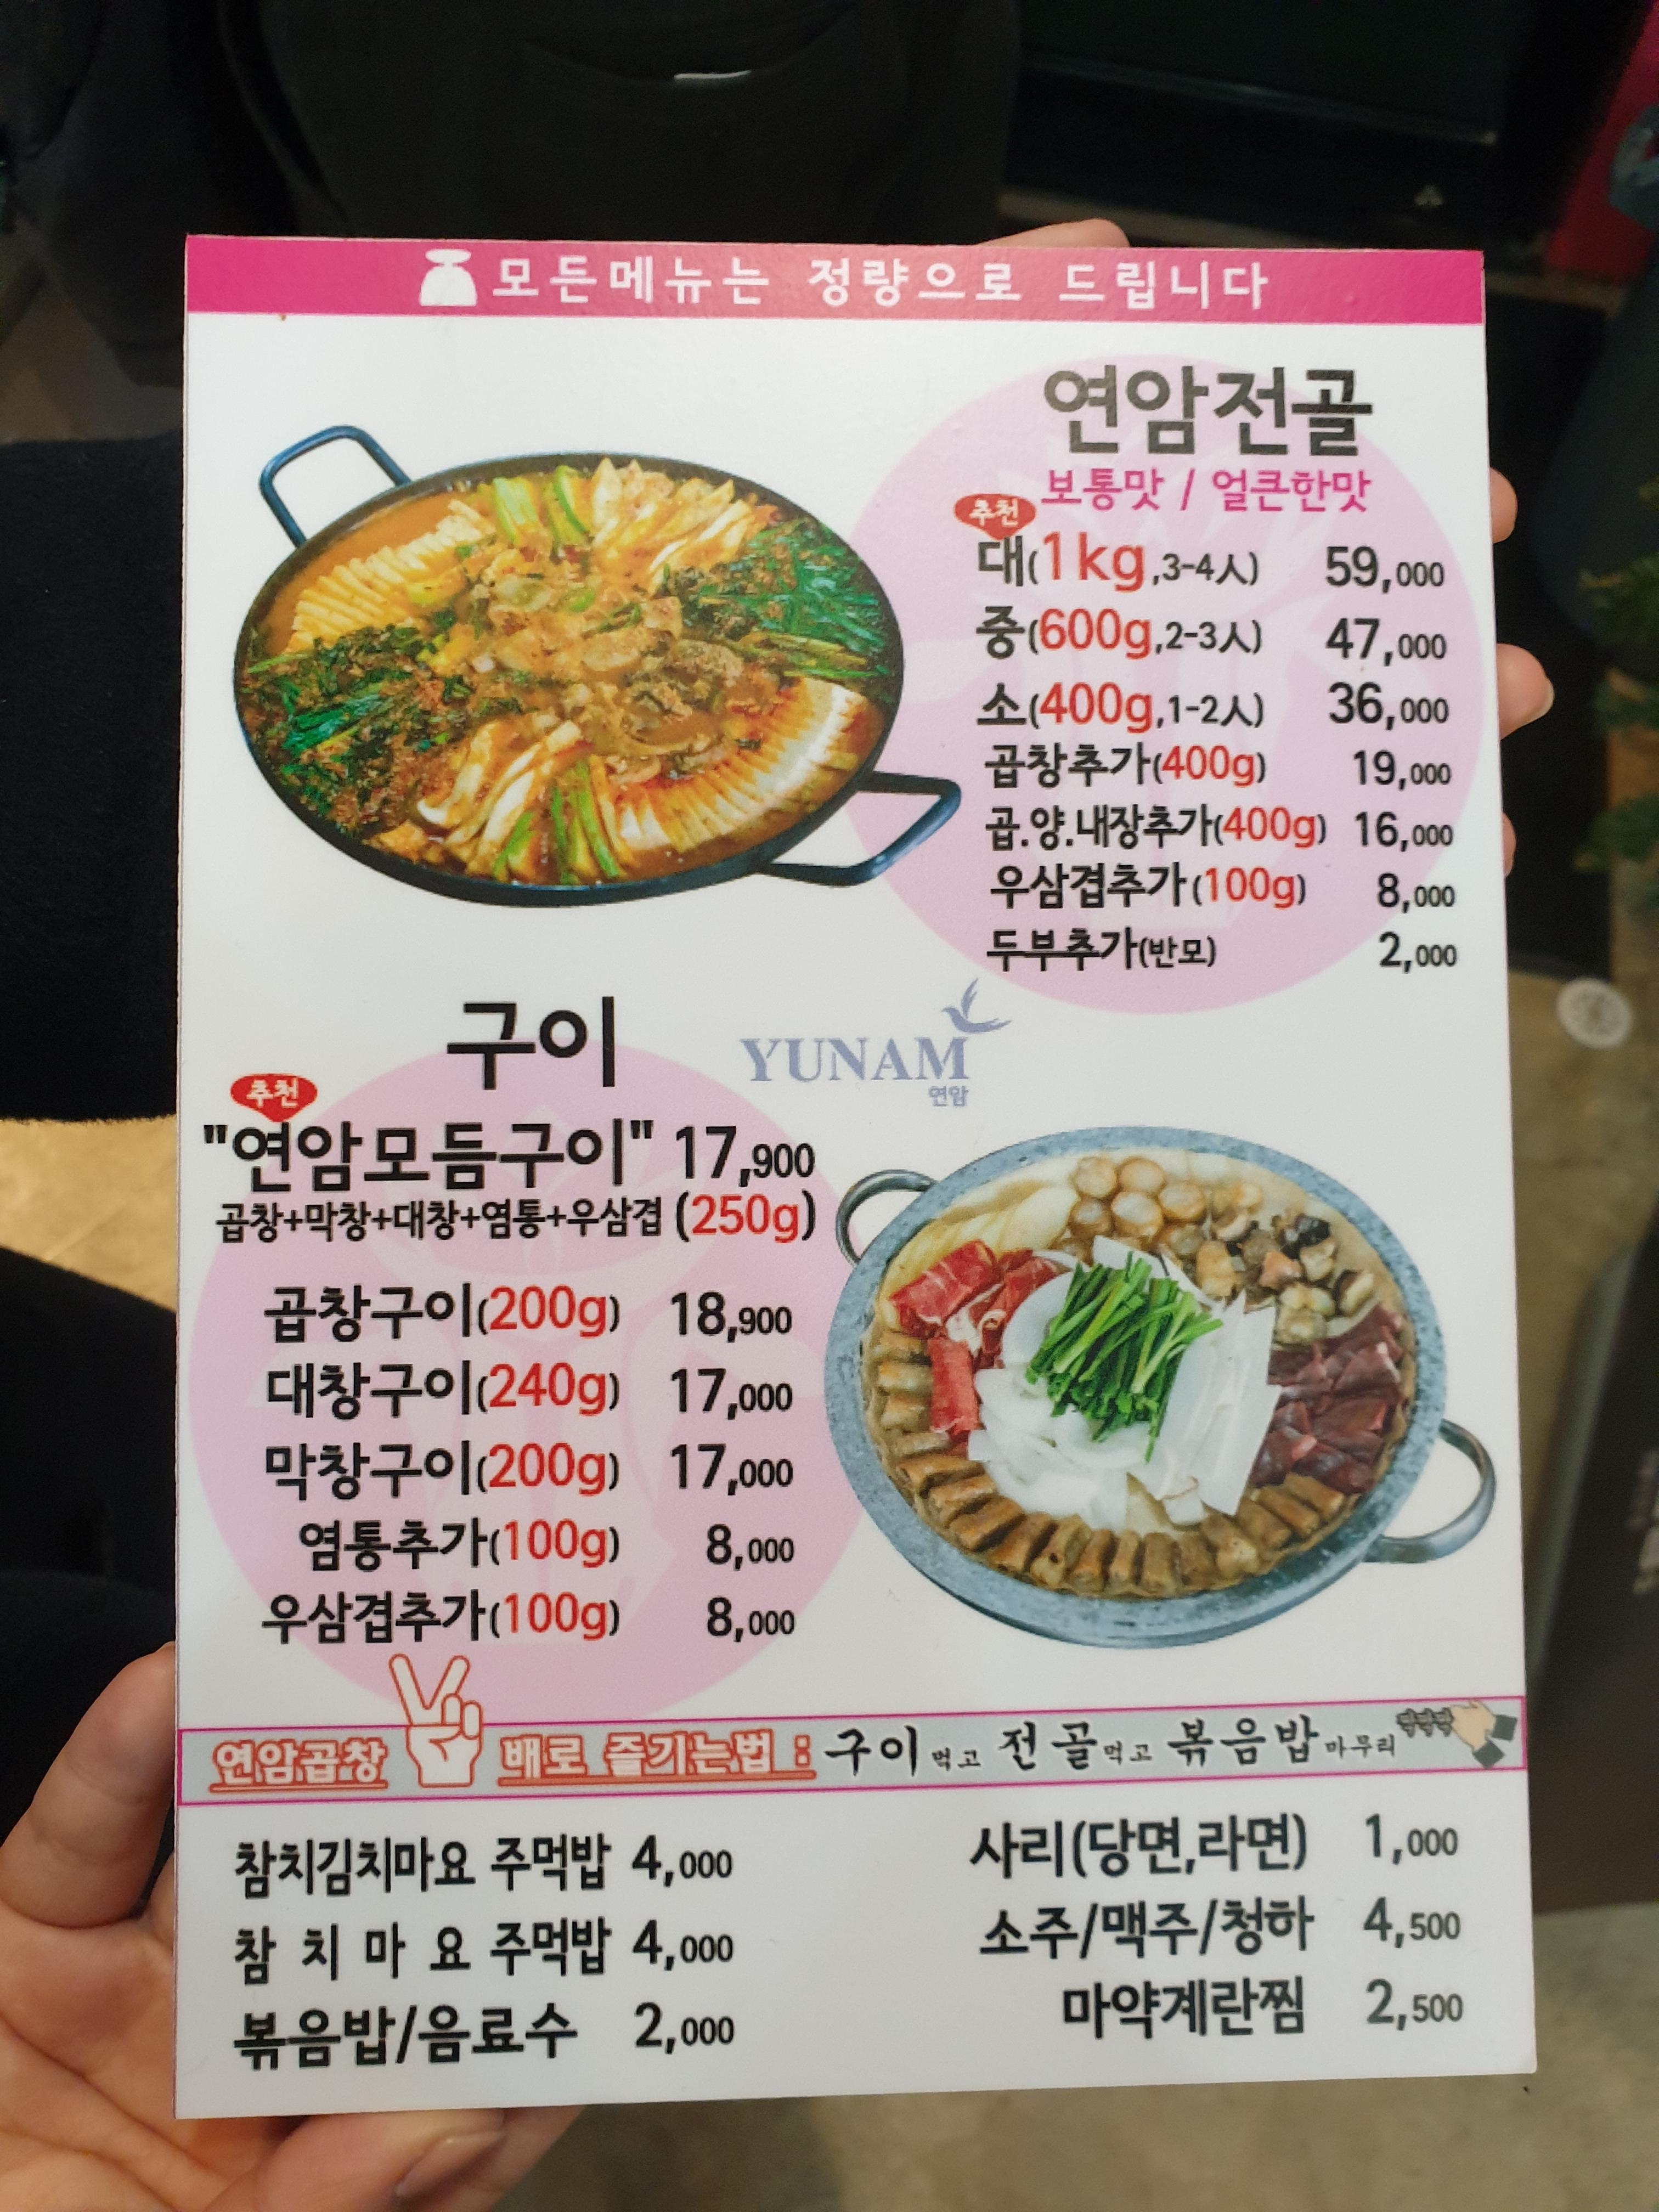 모든메뉴는 정량으로 드립니다
연암전골
보통맛 / 얼큰한맛
추천
대(1kg,3-4人) 59,000
중(600g,2-3人) 47,000
소(400g,1-2人) 36,000
곱창추가(400g) 19,000
곱.양.내장추가(400g) 16,000
우삼겹추가(100g) 8,000
두부추가(반모) 2,000
구이
YUNAM
연암
추천
"연암모듬구이" 17,900
곱창+막창+대창+염통+우삼겹 (250g)
곱창구이(200g) 18,900
대창구이(240g) 17,000
막창구이(200g) 17,000
염통추가(100g) 8,000
우삼겹추가(100g) 8,000
연암곱창 배로 즐기는법 : 구이먹고 전골먹고 볶음밥마무리
참치김치마요 주먹밥 4,000
참 치 마 요 주먹밥 4,000
볶음밥/음료수 2,000
사리(당면,라면) 1,000
소주/맥주/청하 4,500
마약계란찜 2,500